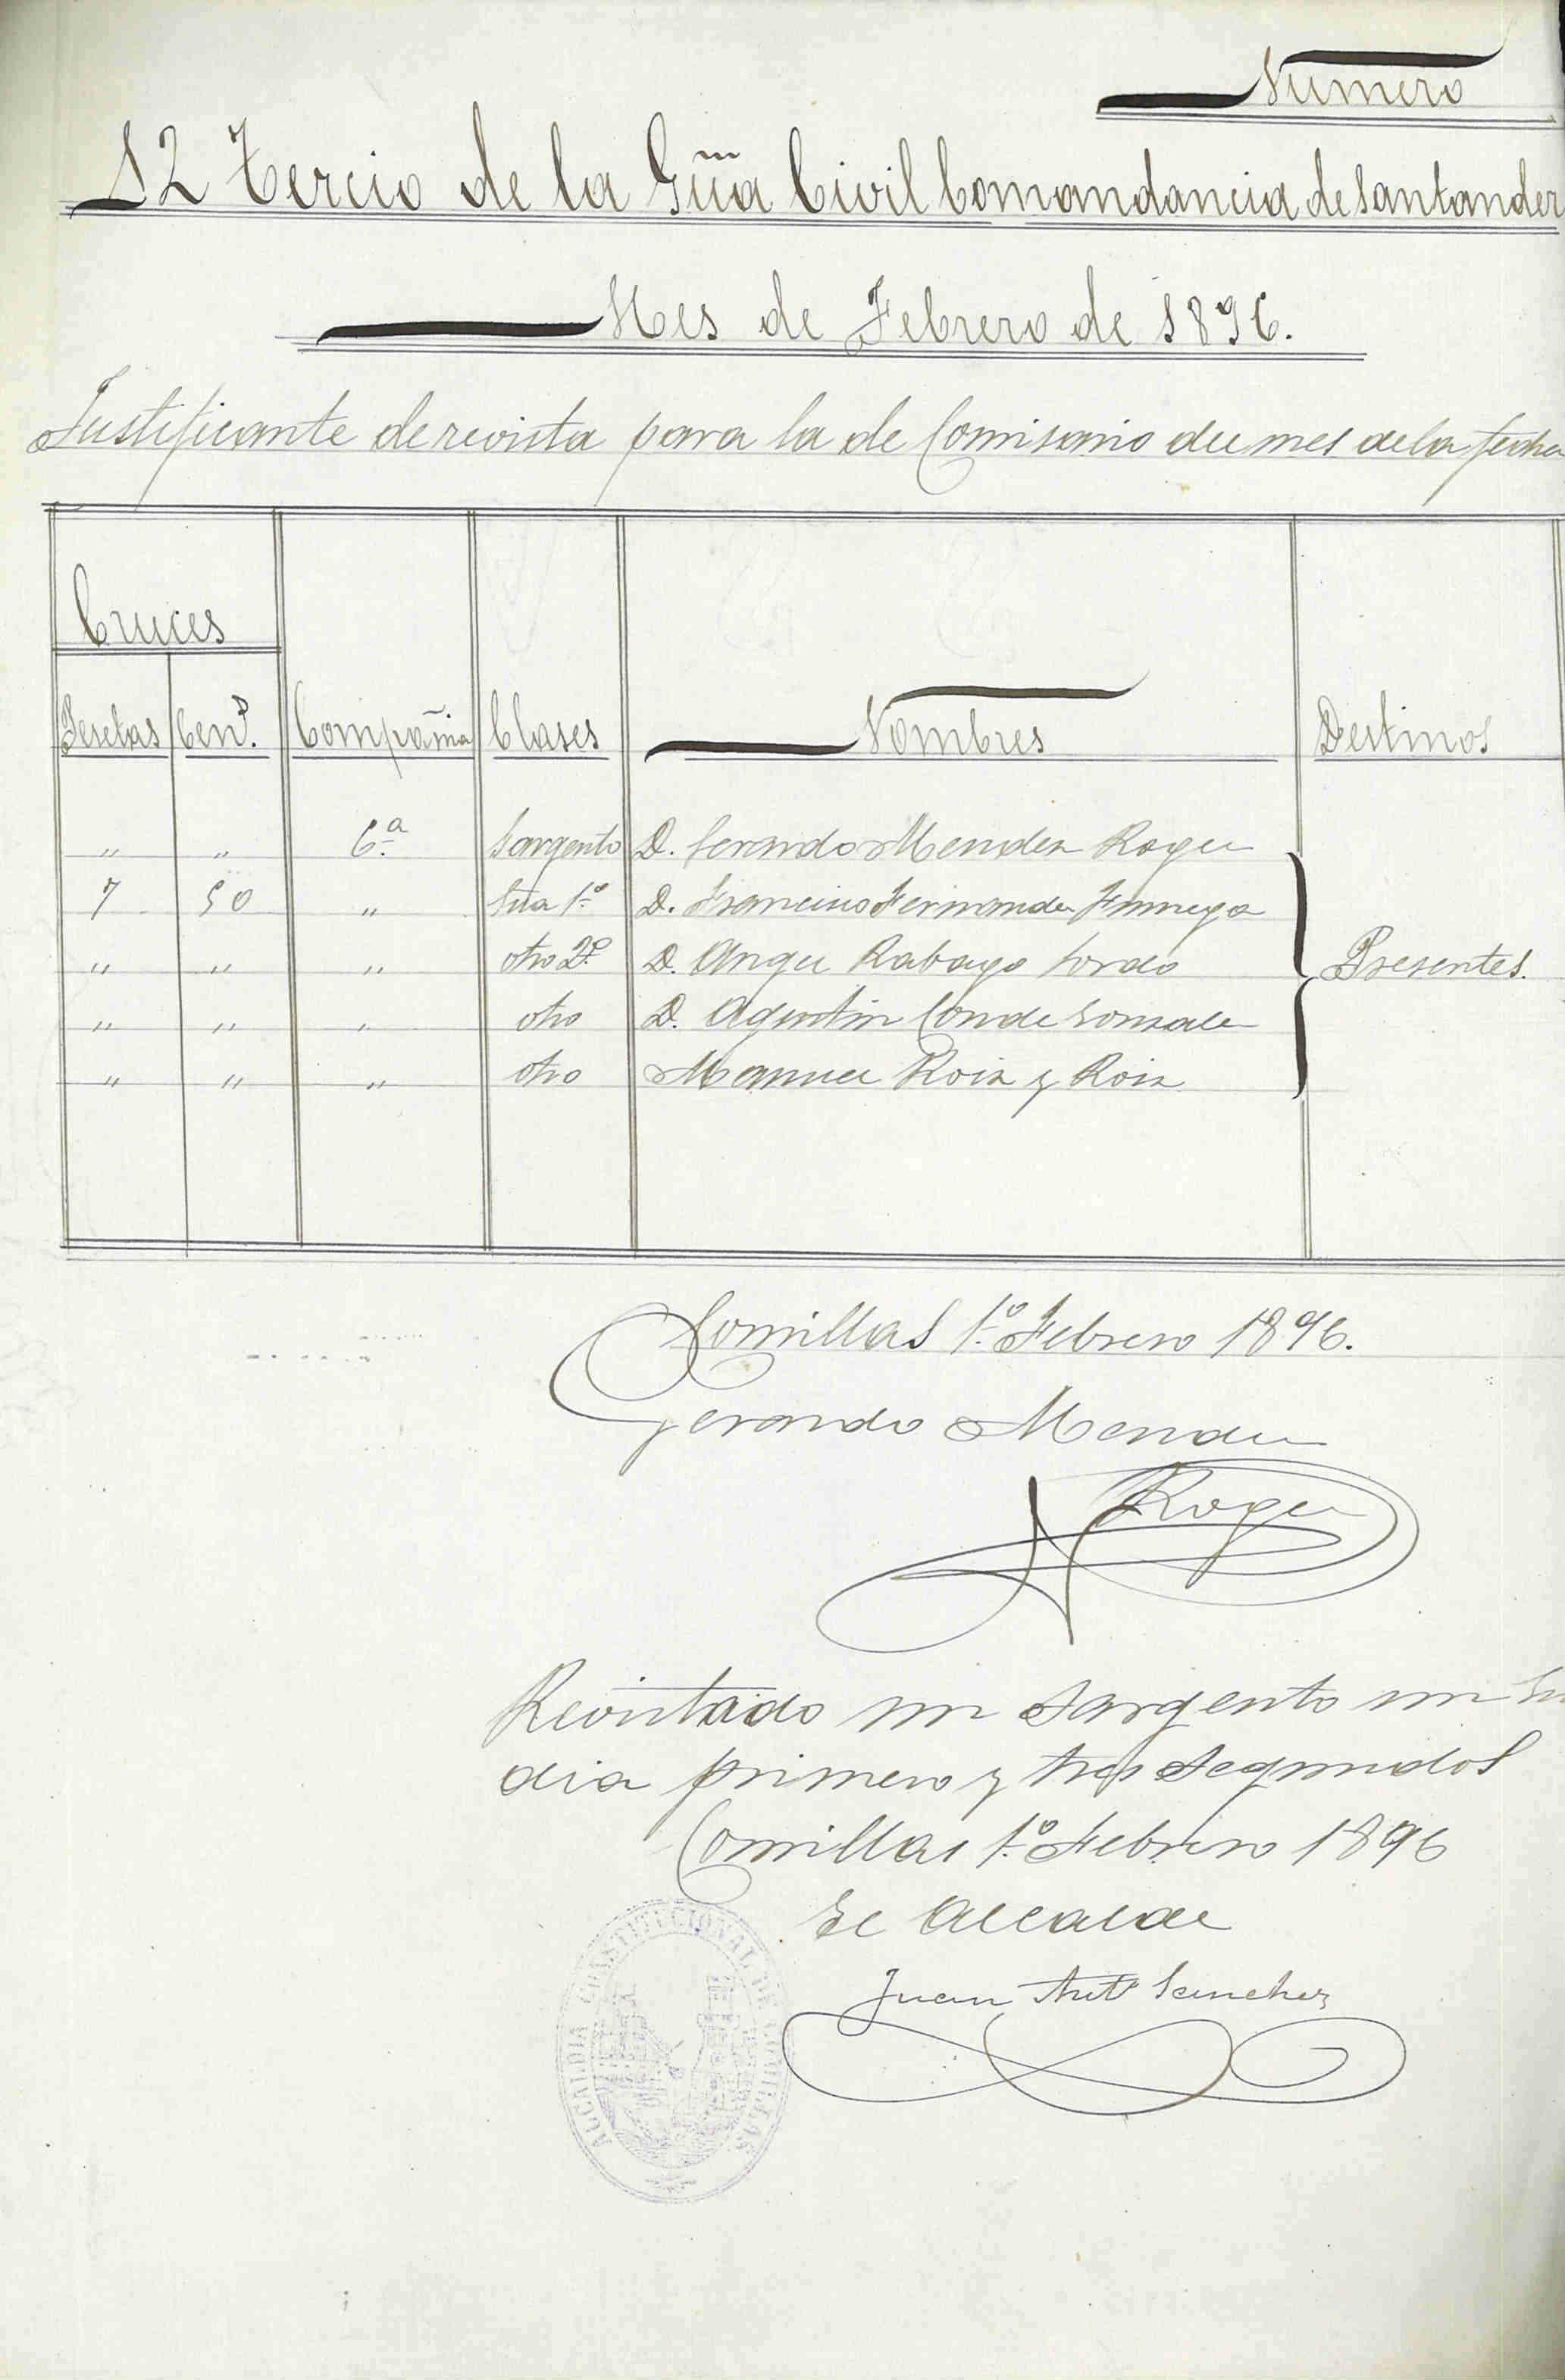 Número
12 Tercio de la Güia Civil Comandancia de Santander
Mes de Febrero de 1896.
Justificante de revista para la de Comisario del mes de la fecha
Cruces
Pesetas Cens. Compañia Clases Nombres Destinos
" " 6.ª Sargento D. Gerardo Mendez Roger
7 50 " Gua 1.º D. Francisco Fernandez
" " " otro 2.º D. Angel Rabago Sordo Presentes.
" " " otro D. Agustin Conde Gonzalez
" " " otro Manuel Roiz y Roiz
Comillas 1.º Febrero 1896.
Gerardo Mendez
Roger
Revistado un Sargento un Gu
dia primero y tres segundos
Comillas 1.º Febrero 1896
El Alcalde
Juan Antº Sanchez
ALCALDIA CONSTITUCIONAL DE COMILLAS